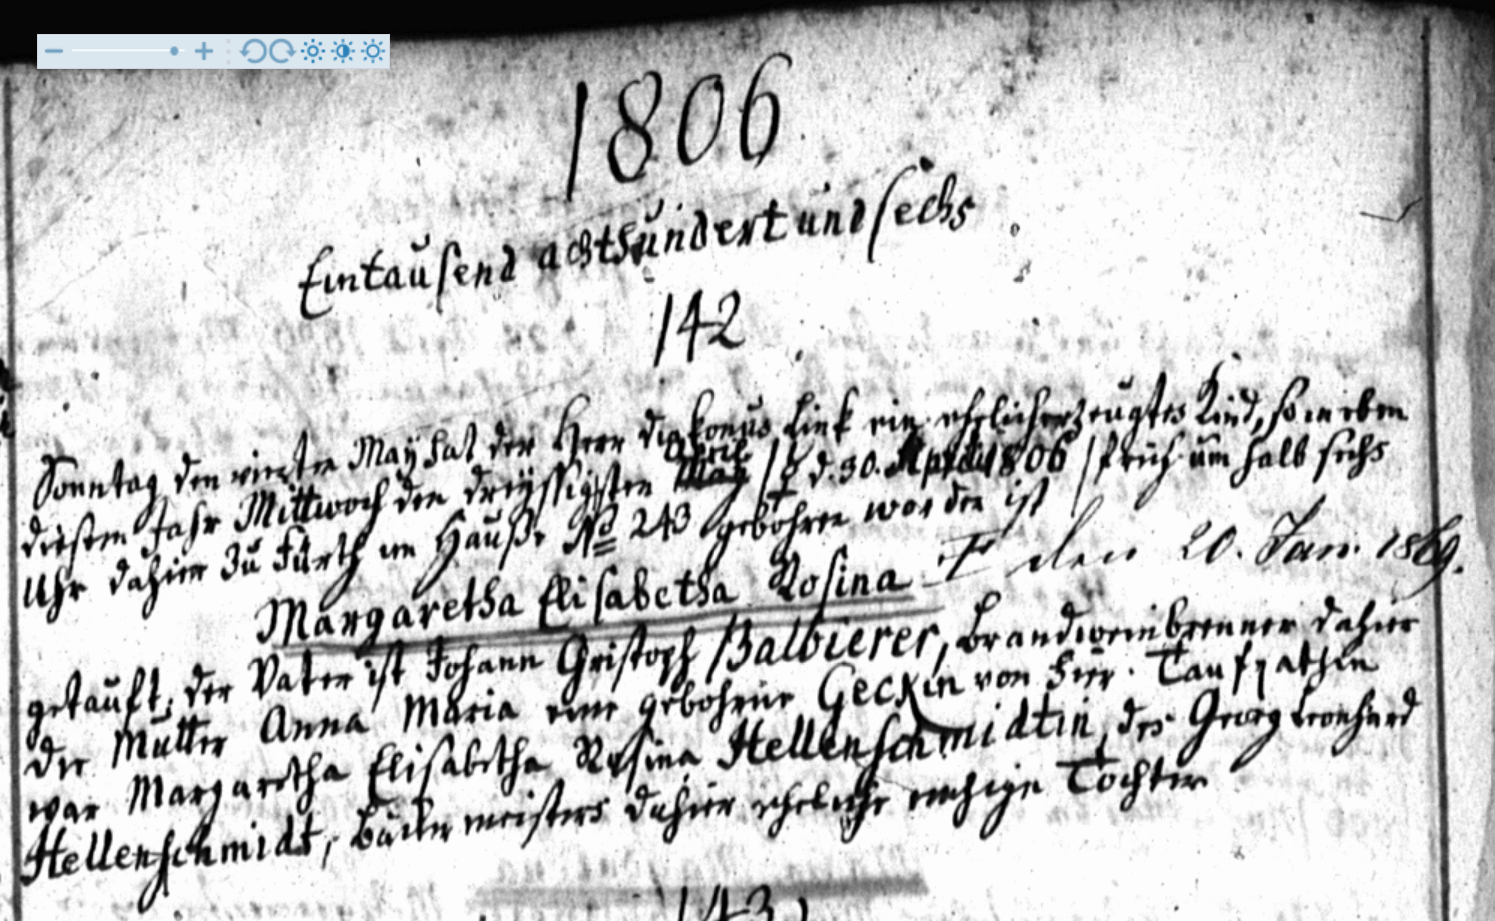 1806
Eintausend achthundert und sechs
142
Sonntag den vierten May hat der Herr Diakonus Link ein ehelicherzeugtes Kind, so in eben
diesem Jahr Mittwoch den dreyssigsten April / d. 30. April 1806 / früh um halb sechs
Uhr dahier zu Fürth im Hauße No 243 gebohren worden ist
Margaretha Elisabetha Rosina
† den 20. Jan. 1869.
getauft; der Vater ist Johann Christoph Balbierer, Brandweinbrenner dahier
die Mutter Anna Maria eine gebohrne Geckin von hier. Taufpathin
war Margaretha Elisabetha Rosina Hellenschmidtin, des Georg Leonhard
Hellenschmidt, Bäckermeisters dahier eheliche Tochter
143